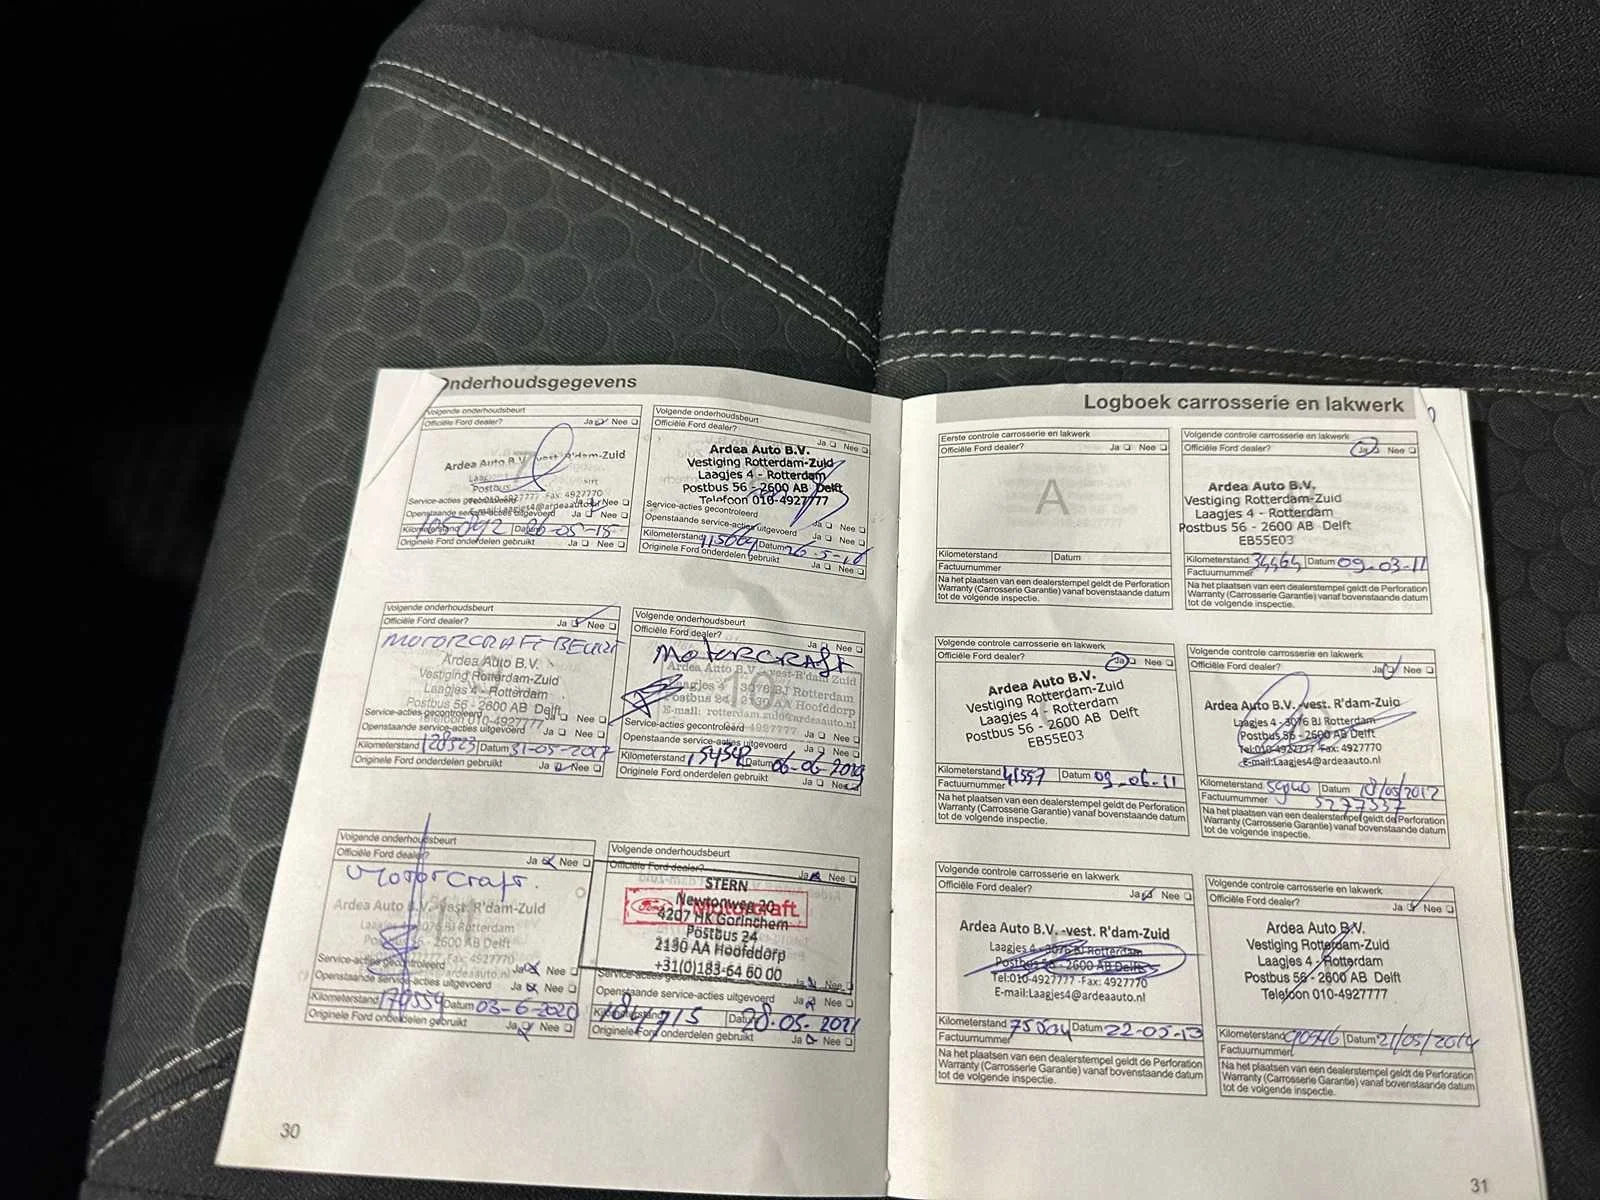 Onderhoudsgegevens
Volgende onderhoudsbeurt
Officiële Ford dealer? Ja Nee
Ardea Auto B.V. -vest. R'dam-Zuid
Postbus
Tel:010-4927777 Fax: 4927770
E-mail:Laagjes4@ardeaauto.nl
Service-acties gecontroleerd Ja Nee
Openstaande service-acties uitgevoerd Ja Nee
Kilometerstand Datum 26-05-15
Originele Ford onderdelen gebruikt Ja Nee
Volgende onderhoudsbeurt
Officiële Ford dealer? Ja Nee
Ardea Auto B.V.
Vestiging Rotterdam-Zuid
Laagjes 4 - Rotterdam
Postbus 56 - 2600 AB Delft
Telefoon 010-4927777
Service-acties gecontroleerd Ja Nee
Openstaande service-acties uitgevoerd Ja Nee
Kilometerstand 115664 Datum 26-5-16
Originele Ford onderdelen gebruikt Ja Nee
Volgende onderhoudsbeurt
Officiële Ford dealer? Ja Nee
MOTORCRAFT BEURT
Ardea Auto B.V.
Vestiging Rotterdam-Zuid
Laagjes 4 - Rotterdam
Postbus 56 - 2600 AB Delft
Telefoon 010-4927777
Service-acties gecontroleerd Ja Nee
Openstaande service-acties uitgevoerd Ja Nee
Kilometerstand 128523 Datum 31-05-2017
Originele Ford onderdelen gebruikt Ja Nee
Volgende onderhoudsbeurt
Officiële Ford dealer? Ja Nee
MOTORCRAFT
10
Ardea Auto B.V. -vest-R'dam Zuid
Laagjes 4 - 3076 BJ Rotterdam
Postbus 24, 2130 AA Hoofddorp
E-mail: rotterdam.zuid@ardeaauto.nl
010 4927777
Service-acties gecontroleerd Ja Nee
Openstaande service-acties uitgevoerd Ja Nee
Kilometerstand 154542 Datum 06-06-2019
Originele Ford onderdelen gebruikt Ja Nee
Volgende onderhoudsbeurt
Officiële Ford dealer? Ja Nee
Motorcraft.
11
Ardea Auto B.V. -vest. R'dam-Zuid
Laagjes 4 - 3076 BJ Rotterdam
Postbus 56 - 2600 AB Delft
Tel:010-4927777 Fax: 4927770
Service-acties gecontroleerd Ja Nee
Openstaande service-acties uitgevoerd Ja Nee
Kilometerstand 170559 Datum 03-6-2020
Originele Ford onderdelen gebruikt Ja Nee
Volgende onderhoudsbeurt
Officiële Ford dealer? Ja Nee
STERN
Ford Motorcraft
Newtonweg 20
4207 HK Gorinchem
Postbus 24
2130 AA Hoofddorp
+31(0)183-64 60 00
Service-acties gecontroleerd Ja Nee
Openstaande service-acties uitgevoerd Ja Nee
Kilometerstand 184715 Datum 28.05.2021
Originele Ford onderdelen gebruikt Ja Nee
30
Logboek carrosserie en lakwerk
Eerste controle carrosserie en lakwerk
Officiële Ford dealer? Ja Nee
A
Kilometerstand Datum
Factuurnummer
Na het plaatsen van een dealerstempel geldt de Perforation
Warranty (Carrosserie Garantie) vanaf bovenstaande datum
tot de volgende inspectie.
Volgende controle carrosserie en lakwerk
Officiële Ford dealer? Ja Nee
Ardea Auto B.V.
Vestiging Rotterdam-Zuid
Laagjes 4 - Rotterdam
Postbus 56 - 2600 AB Delft
EB55E03
Kilometerstand 34464 Datum 09-03-11
Factuurnummer
Na het plaatsen van een dealerstempel geldt de Perforation
Warranty (Carrosserie Garantie) vanaf bovenstaande datum
tot de volgende inspectie.
Volgende controle carrosserie en lakwerk
Officiële Ford dealer? Ja Nee
Ardea Auto B.V.
Vestiging Rotterdam-Zuid
Laagjes 4 - Rotterdam
Postbus 56 - 2600 AB Delft
EB55E03
Kilometerstand 41557 Datum 09-06-11
Factuurnummer
Na het plaatsen van een dealerstempel geldt de Perforation
Warranty (Carrosserie Garantie) vanaf bovenstaande datum
tot de volgende inspectie.
Volgende controle carrosserie en lakwerk
Officiële Ford dealer? Ja Nee
Ardea Auto B.V. -vest. R'dam-Zuid
Laagjes 4 - 3076 BJ Rotterdam
Postbus 56 - 2600 AB Delft
Tel:010-4927777 Fax: 4927770
E-mail:Laagjes4@ardeaauto.nl
Kilometerstand Datum 18/05/2012
Factuurnummer 5277337
Na het plaatsen van een dealerstempel geldt de Perforation
Warranty (Carrosserie Garantie) vanaf bovenstaande datum
tot de volgende inspectie.
Volgende controle carrosserie en lakwerk
Officiële Ford dealer? Ja Nee
Ardea Auto B.V. -vest. R'dam-Zuid
Laagjes 4 - 3076 BJ Rotterdam
Postbus 56 - 2600 AB Delft
Tel:010-4927777 -Fax: 4927770
E-mail:Laagjes4@ardeaauto.nl
Kilometerstand Datum 22-05-13
Factuurnummer
Na het plaatsen van een dealerstempel geldt de Perforation
Warranty (Carrosserie Garantie) vanaf bovenstaande datum
tot de volgende inspectie.
Volgende controle carrosserie en lakwerk
Officiële Ford dealer? Ja Nee
Ardea Auto B.V.
Vestiging Rotterdam-Zuid
Laagjes 4 - Rotterdam
Postbus 56 - 2600 AB Delft
Telefoon 010-4927777
Kilometerstand 90546 Datum 21/05/2014
Factuurnummer
Na het plaatsen van een dealerstempel geldt de Perforation
Warranty (Carrosserie Garantie) vanaf bovenstaande datum
tot de volgende inspectie.
31